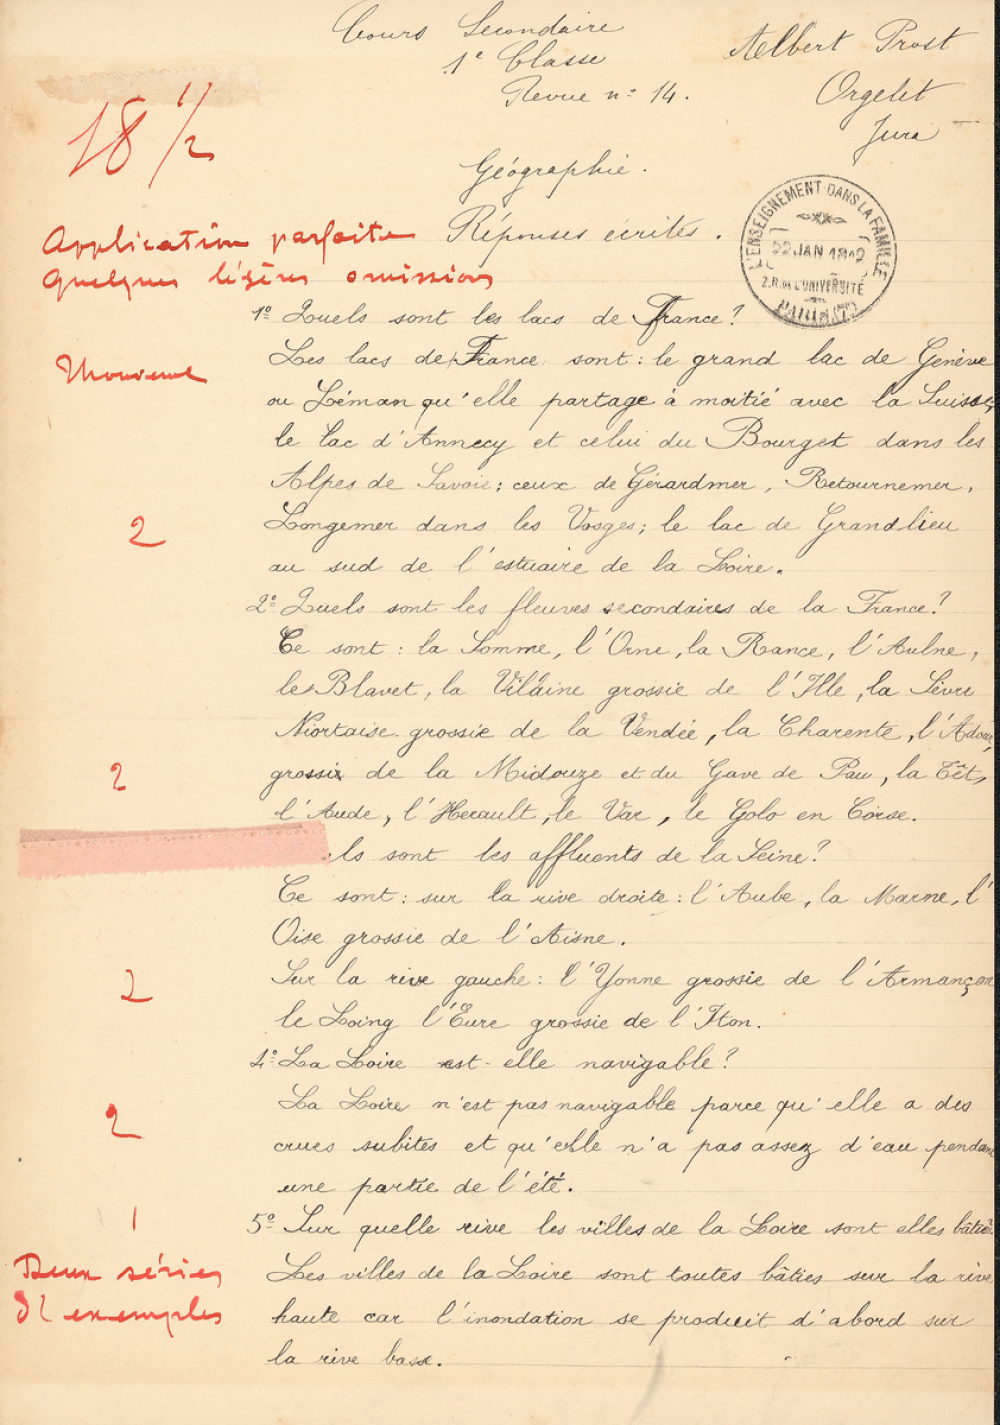 Cours Secondaire
1e Classe
Revue no 14.
Aelbert Prost
Orgelet
Jura
18 1/2
Géographie.
L'ENSEIGNEMENT DANS LA FAMILLE
22 JAN
2.R. DE L'UNIVERSITÉ
Application parfaite
Réponses écrites.
Quelques légères omissions
1o Quels sont les lacs de France?
Les lacs de France sont: le grand lac de Genève
ou Léman qu'elle partage à moitié avec la Suisse,
le lac d'Annecy et celui du Bourget dans les
Alpes de Savoie; ceux de Gérardmer, Retournemer,
2
Longemer dans les Vosges; le lac de Grandlieu
au sud de l'estuaire de la Loire.
2o Quels sont les fleuves secondaires de la France?
Ce sont: la Somme, l'Orne, la Rance, l'Aulne,
le Blavet, la Vilaine grossie de l'Ille, la Sèvre
Niortaise grossie de la Vendée, la Charente, l'Adour,
2
grossie de la Midouze et du Gave de Pau, la Têt,
l'Aude, l'Herault, le Var, le Golo en Corse.
ls sont les affluents de la Seine?
Ce sont: sur la rive droite: l'Aube, la Marne, l'
Oise grossie de l'Aisne.
2
Sur la rive gauche: l'Yonne grossie de l'Armançon
le Loing l'Eure grossie de l'Iton.
4o La Loire est-elle navigable?
2
La Loire n'est pas navigable parce qu'elle a des
crues subites et qu'elle n'a pas assez d'eau pendant
une partie de l'été.
1
5o Sur quelle rive les villes de la Loire sont elles bâties?
Deux séries
d'exemples
Les villes de la Loire sont toutes bâties sur la rive
haute car l'inondation se produit d'abord sur
la rive basse.